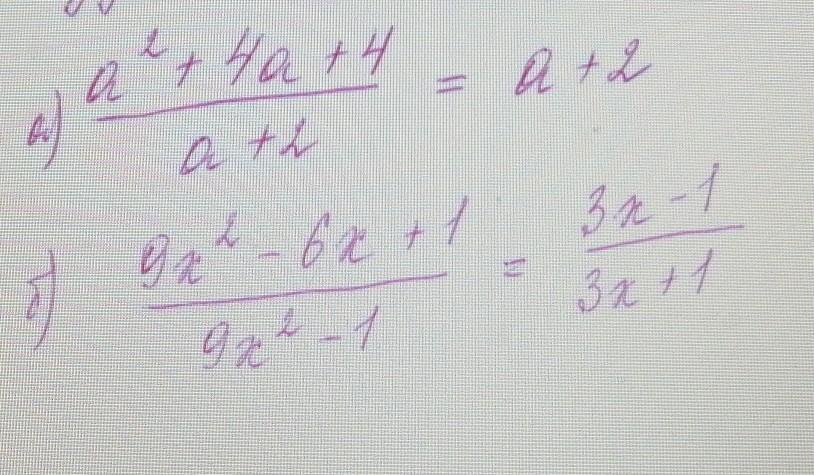 а) (a² + 4a + 4)/(a + 2) = a + 2
б) (9x² - 6x + 1)/(9x² - 1) = (3x - 1)/(3x + 1)